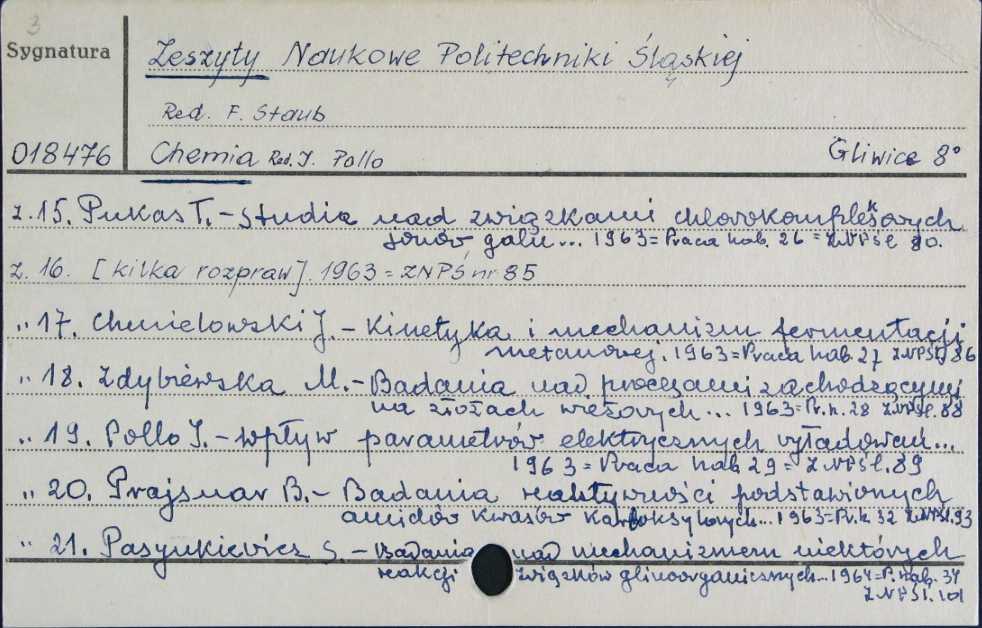 3
Sygnatura
Zeszyty Naukowe Politechniki Śląskiej
Red. F. Staub
018476 Chemia Red. J. Pollo Gliwice 8°
z. 15. Pukas T. – Studia nad związkami chlorokompleksowych
jonów galu... 1963 = Praca hab. 26 = ZNPŚl. 80.
Z. 16. [kilka rozpraw]. 1963 = ZNPŚ nr 85
„ 17. Chmielowski J. – Kinetyka i mechanizm fermentacji
metanowej. 1963 = Praca hab. 27 ZNPŚl 86
„ 18. Zdybiewska M. – Badania nad procesami zachodzącymi
na złożach wieżowych... 1963 = Pr. h. 28 ZNPŚl. 88
„ 19. Pollo J. – Wpływ parametrów elektrycznych wyładowań...
1963 = Praca hab 29 = ZNPŚl. 89
„ 20. Prajsnar B. – Badania reaktywności podstawionych
amidów kwasów karboksylowych... 1963 = Pr. h. 32 ZNPŚl. 93
„ 21. Pasynkiewicz S. – Badania nad mechanizmem niektórych
reakcji związków glinoorganicznych... 1964 = P. hab. 34
ZNPŚl. 101